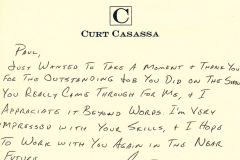 C
CURT CASASSA
PAUL,
JUST WANTED TO TAKE A MOMENT & THANK YOU
FOR THE OUTSTANDING JOB YOU DID ON THE SHOW
YOU REALLY CAME THROUGH FOR ME, & I
APPRECIATE IT BEYOND WORDS. I'M VERY
IMPRESSED WITH YOUR SKILLS, & I HOPE
TO WORK WITH YOU AGAIN IN THE NEAR
FUTURE